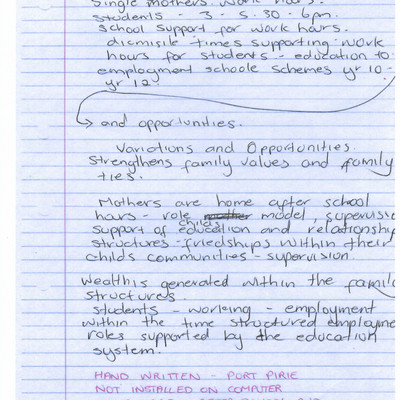 Single Mothers. Work hours.
Students - 3 - 5.30 - 6pm.
School support for work hours.
dismisile times supporting work
hours for students - education to
employment schoole schemes yr 10-
yr 12.
→ and opportunities.
Variations and Opportunities
Strengthens family values and family
ties.
Mothers are home after school
hours - role model, supervisio
support of childs education and relationship
structures - friedships within their
childs communities - supervision.
Wealth is generated within the famil
structures.
students - working - employment
within the time structured employme
roles supported by the education
system.
HAND WRITTEN - PORT PIRIE
NOT INSTALLED ON COMPUTER